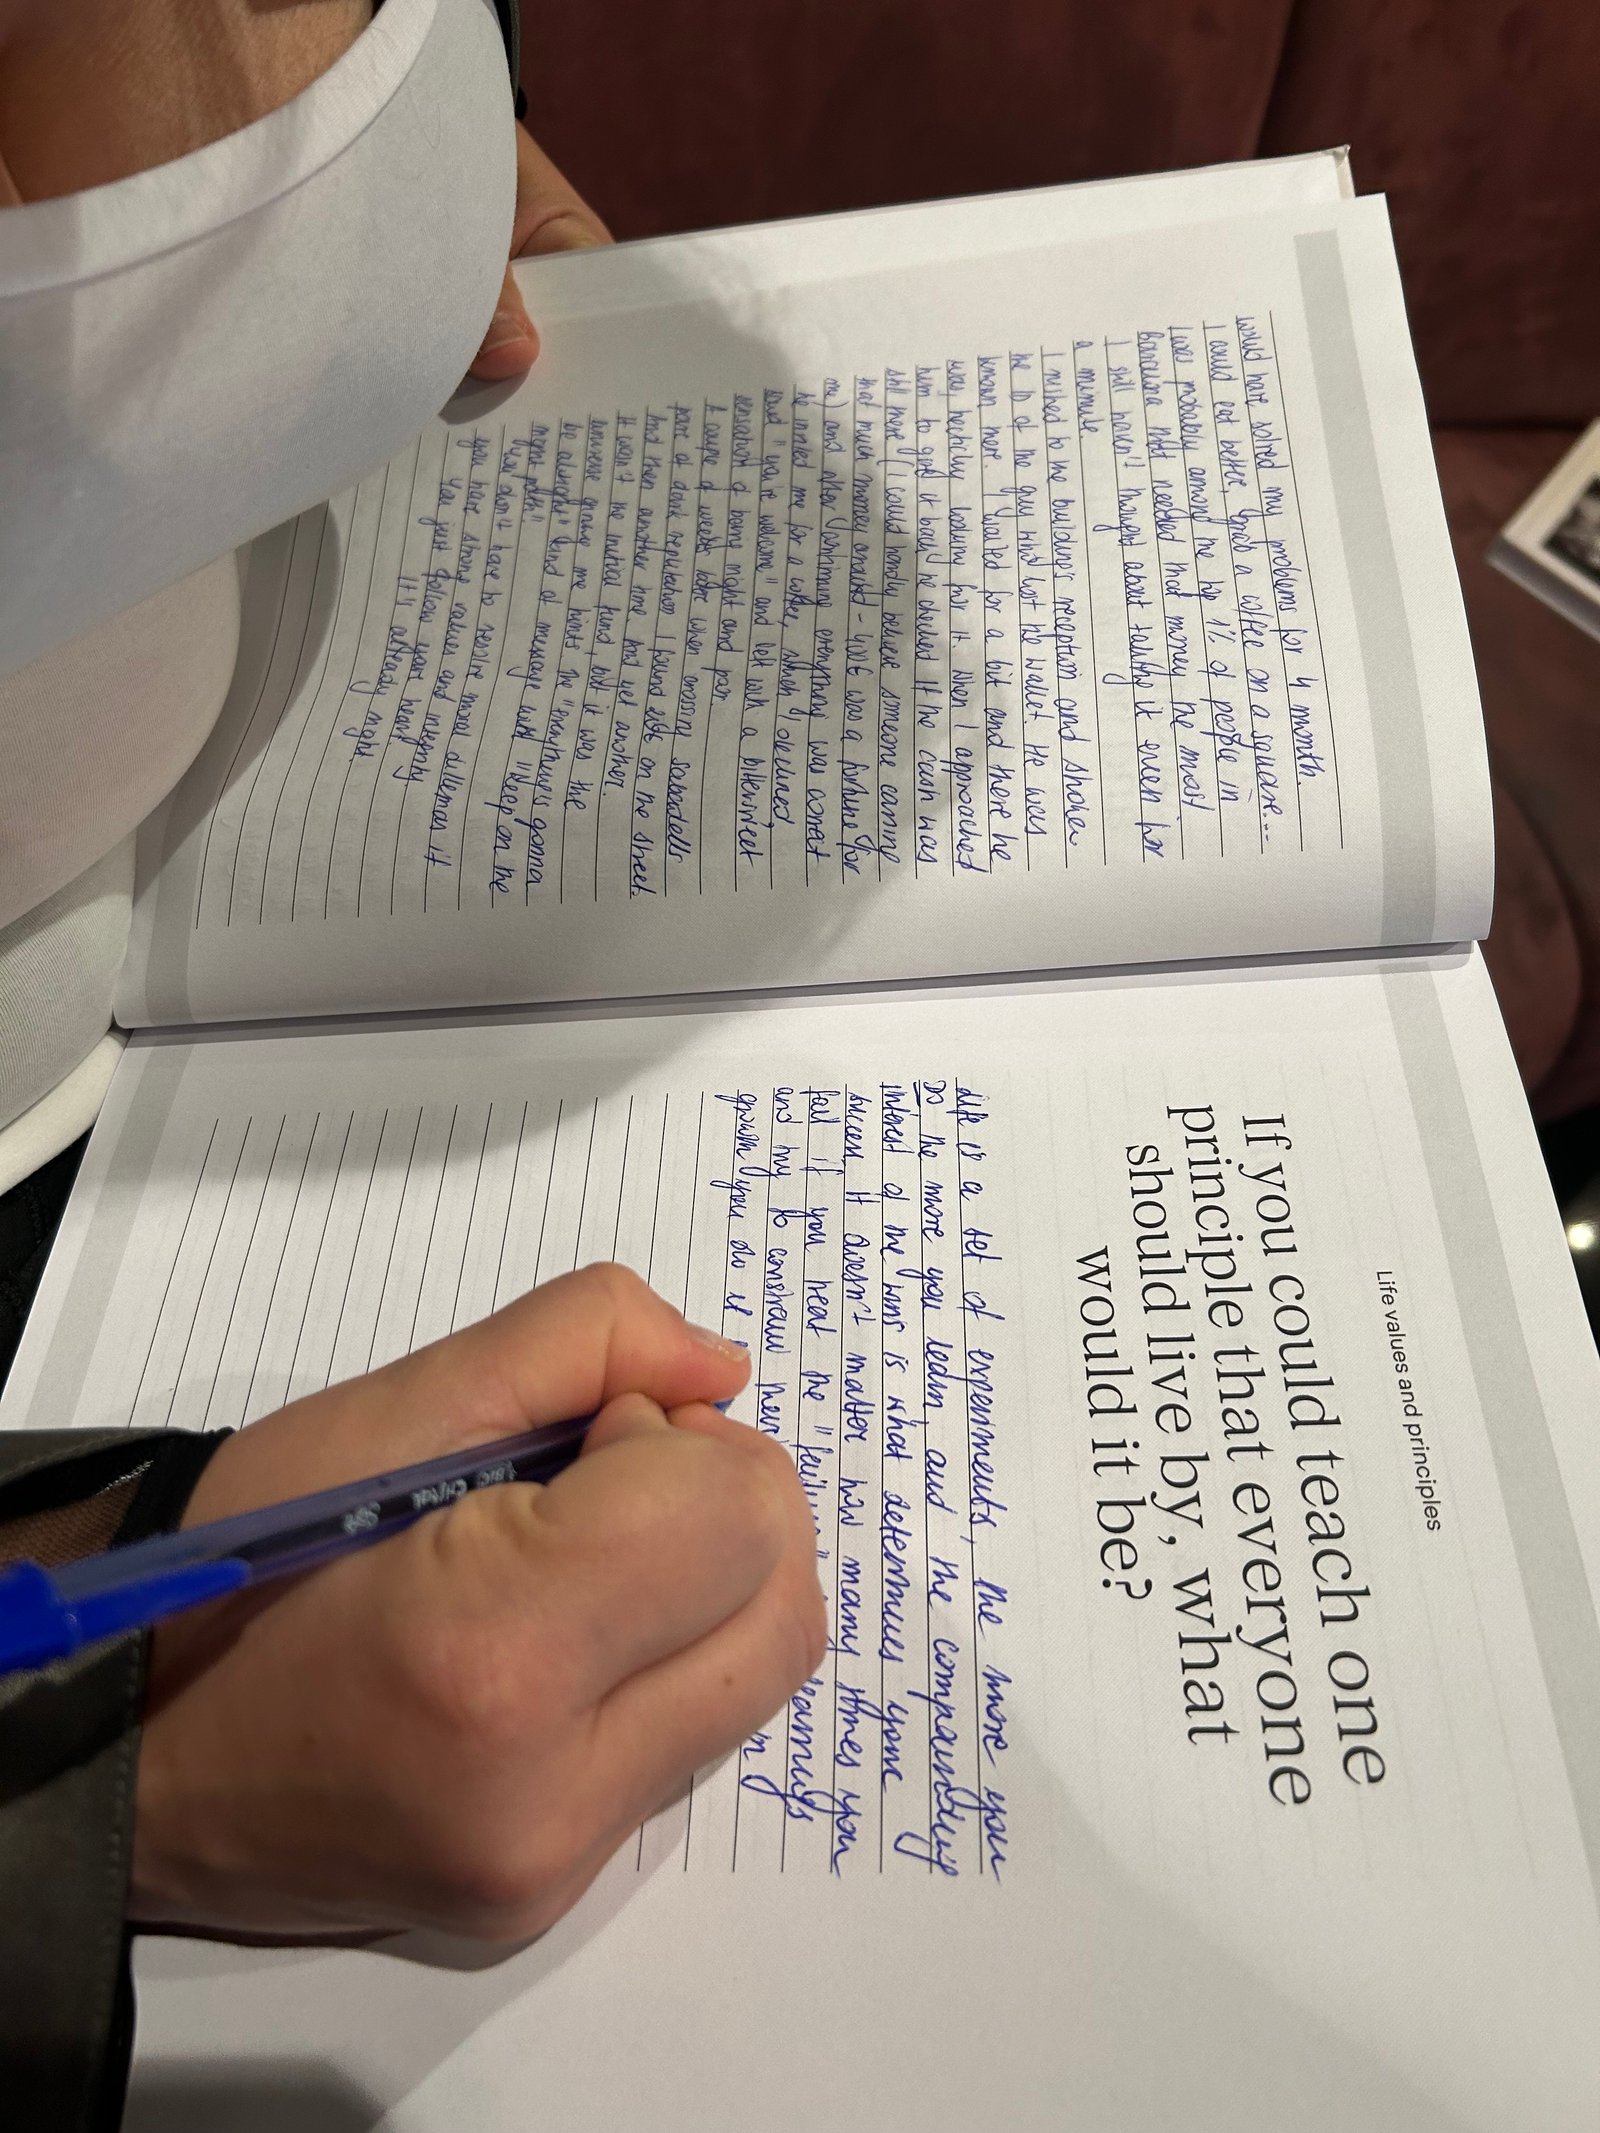 would have solved my problems for 4 month.
I could eat better, grab a coffee on a square...
I was probably among the top 1% of people in
Barcelona that needed that money the most
I still haven't thought about taking it even for
a minute.
I rushed to the building's reception and shown
the ID of the guy who lost the wallet. He was
known there. I waited for a bit and there he
was, hectically looking for it. When I approached
him to give it back he checked if the cash was
still there (I could hardly believe someone carring
that much money around - 400€ was a fortune for
me) and after confirming everything was correct
he invited me for a coffee, which I declined,
said "you're welcome" and left with a bittersweet
sensation of being right and poor.
A couple of weeks later when crossing Sabadell's
park of dark reputation I found 50€ on the street.
And then another time. And yet another.
It wasn't the initial fund, but it was the
universe giving me hints the "everything's gonna
be alright" kind of message with "Keep on the
right path"
You don't have to resolve moral dillemas if
you have strong values and integrity
You just follow your heart.
It is already right.
Life values and principles
If you could teach one
principle that everyone
should live by, what
would it be?
Life is a set of experiments, the more you
Do the more you learn and the compounding
interest of the wins is what determines your
success. It doesn't matter how many times you
fail if you treat the "failures" learnings
and try to constrain them
growth you do it